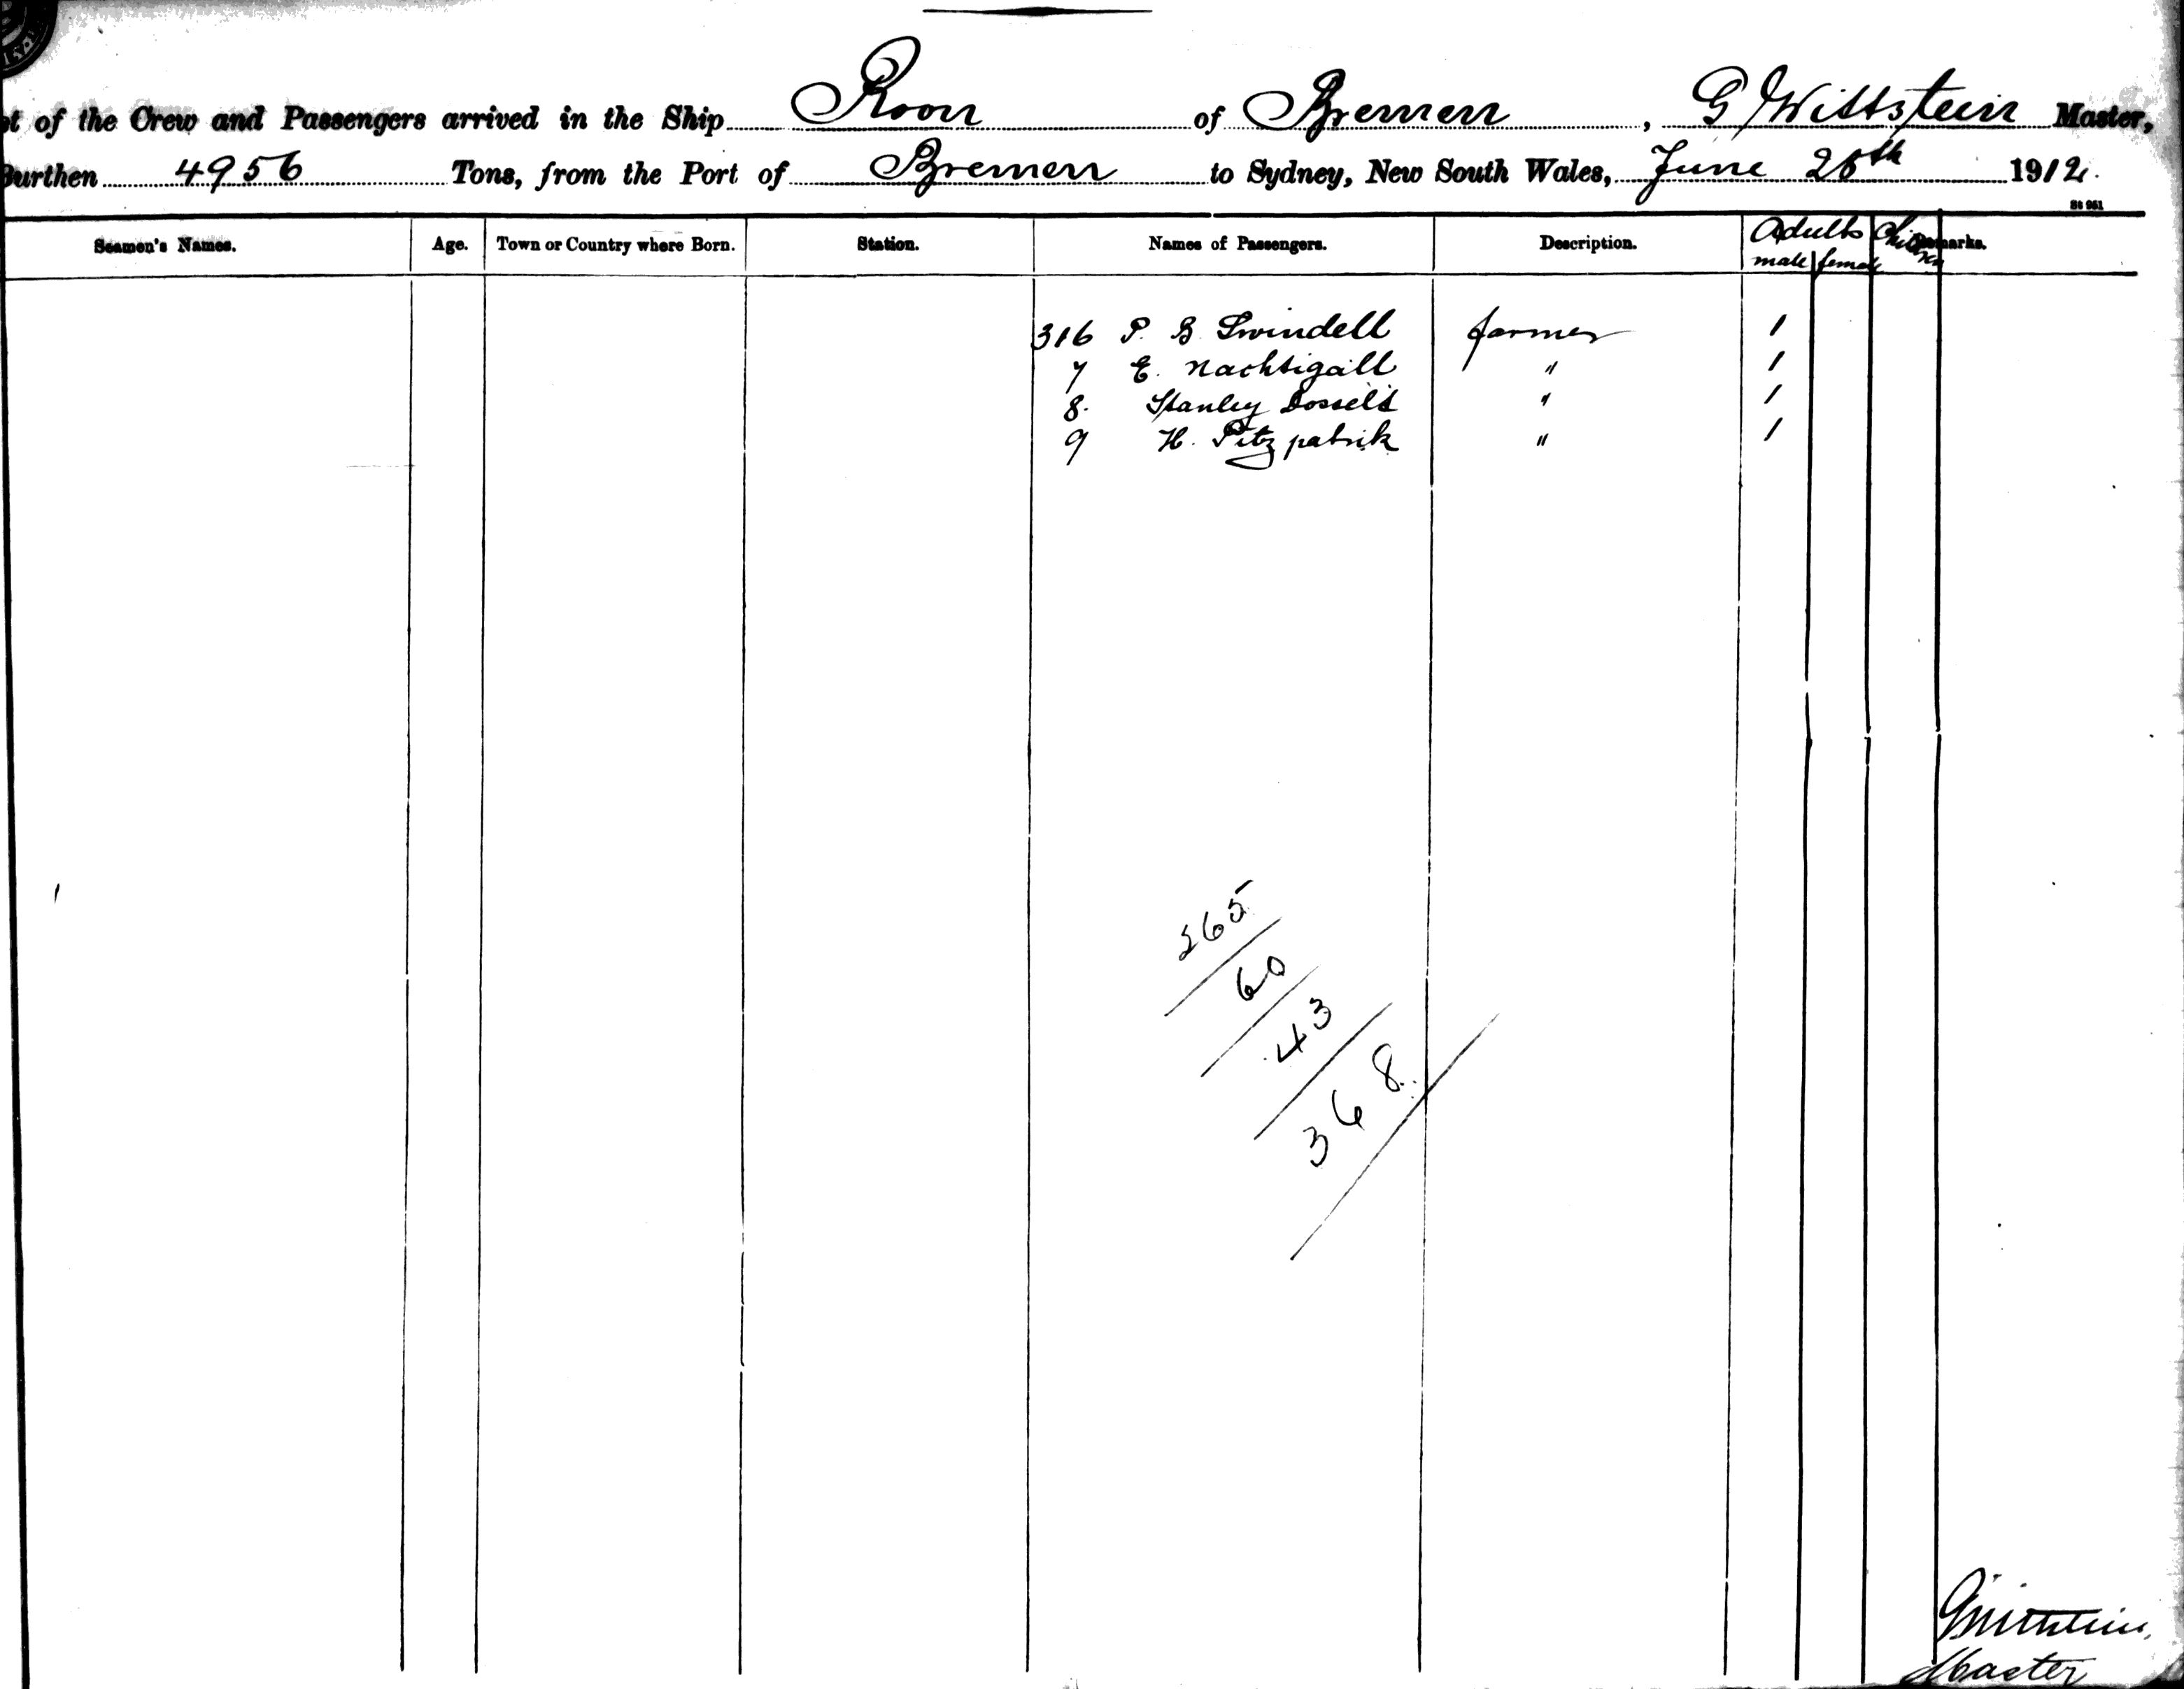 st of the Crew and Passengers arrived in the Ship Roon of Bremen, G Wittstein Master,
Burthen 4956 Tons, from the Port of Bremen to Sydney, New South Wales, June 20th 1912.
St 961
Seamen's Names. Age. Town or Country where Born. Station. Names of Passengers. Description. Adults Children Remarks.
male female
316 P. B. Swindell farmer 1
7 E. Nachtigall " 1
8. Stanley " 1
9 H. Pitzpatrik " 1
265
60
43
368
GWittstein
Master